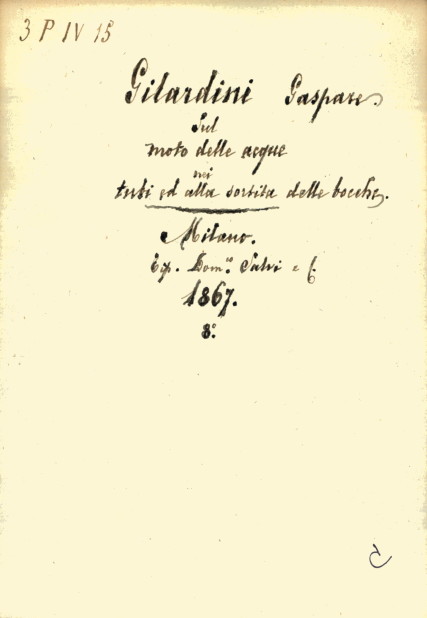 3 P IV 15
Gilardini Gaspare
Sul
moto delle acque
nei
tubi ed alla sortita delle bocche.
Milano.
Tip. Dom.co Salvi e C.
1867.
8.o
C